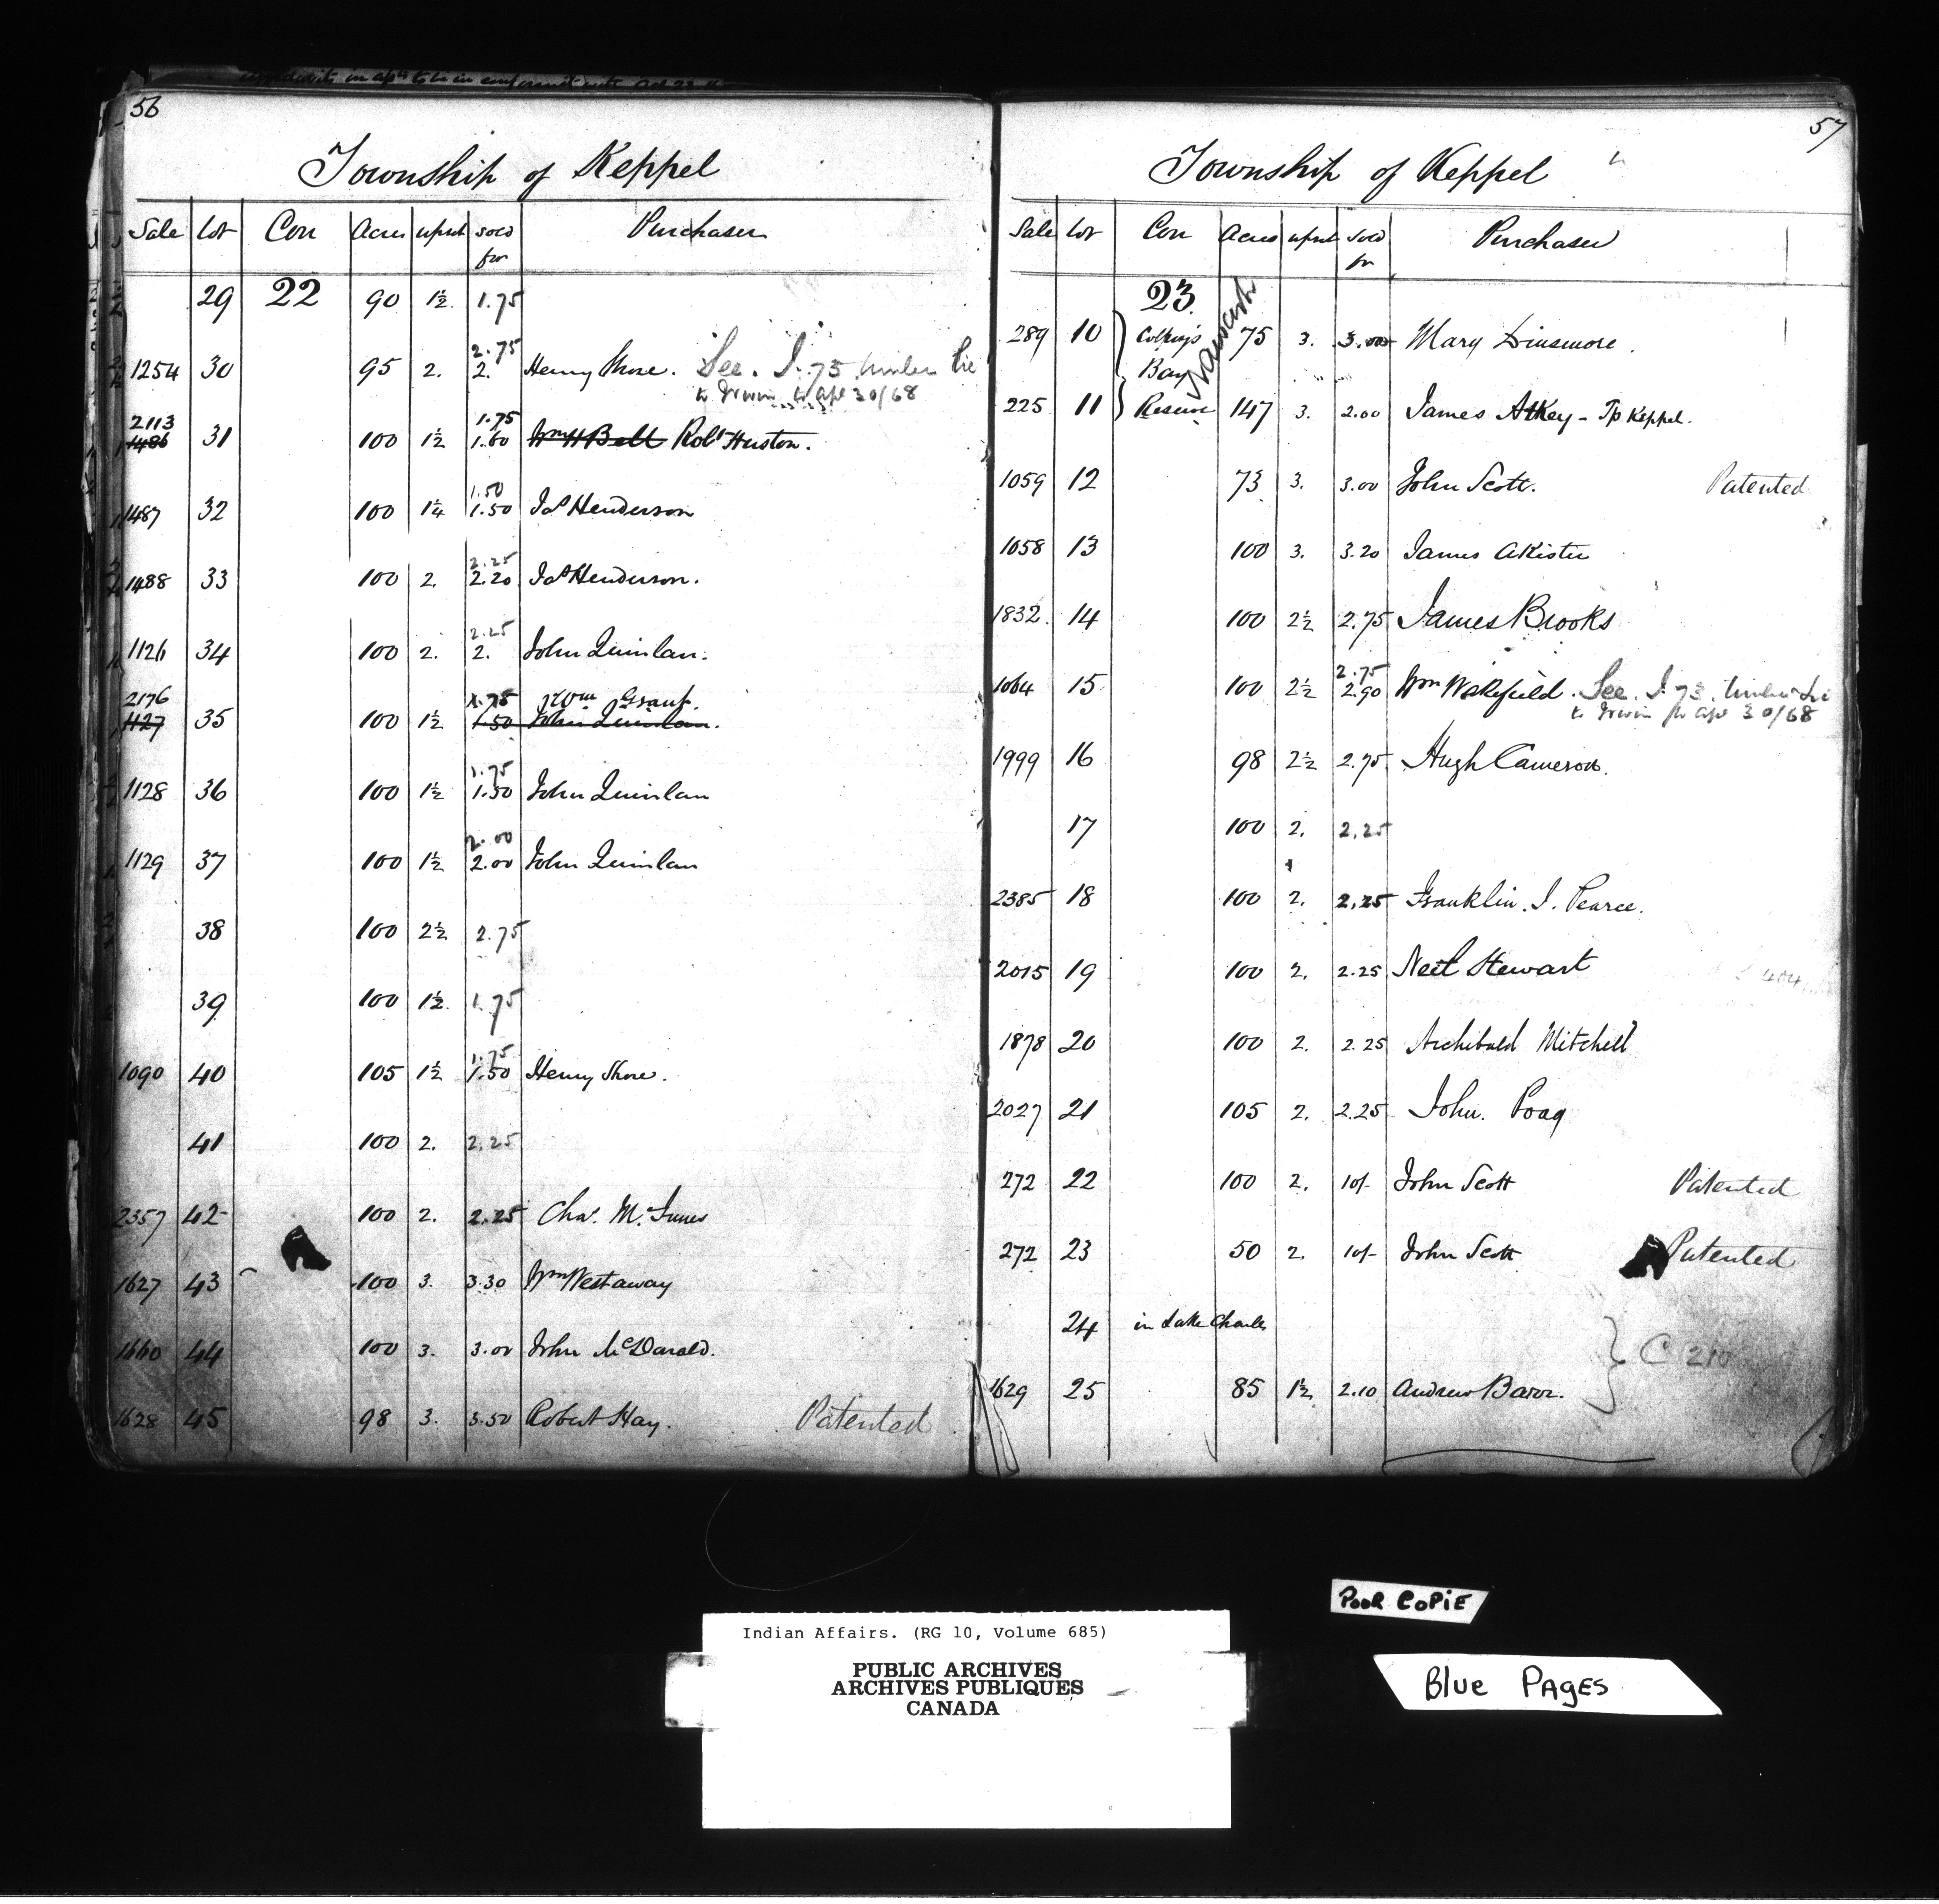 56
Township of Keppel
Sale Lot Con Acres upset sold for Purchaser
29 22 90 1½ 1.75
2.75
1254 30 95 2. 2. Henry Shore. See. I. 73 timber Lic
to Irwin to apl 30/68
2113 1.75
1486 31 100 1½ 1.60 Wm H Bell Robt Huston.
1.50
1487 32 100 1¼ 1.50 Jas Henderson
2.25
1488 33 100 2. 2.20 Jas Henderson.
2.25
1126 34 100 2. 2. John Quinlan.
2176 1.75 Wm Grant.
1127 35 100 1½ 1.50 John Quinlan.
1.75
1128 36 100 1½ 1.50 John Quinlan
2.00
1129 37 100 1½ 2.00 John Quinlan
38 100 2½ 2.75
39 100 1½ 1.75
1.75
1090 40 105 1½ 1.50 Henry Shore.
41 100 2. 2.25
2357 42 100 2. 2.25 Chas. McInnes
1627 43 100 3. 3.30 Wm Westaway
1660 44 100 3. 3.00 John McDonald.
1628 45 98 3. 3.50 Robert Hay. Patented
57
Township of Keppel
Sale Lot Con Acres upset sold for Purchaser
23
289 10 Colpoy's 75 3. 3.00 Mary Dinsmore.
Bay
225 11 Reserve 147 3. 2.00 James Atkey - Tp Keppel.
1059 12 73 3. 3.00 John Scott. Patented
1058 13 100 3. 3.20 James Akister
1832 14 100 2½ 2.75 James Brooks
2.75
1064 15 100 2½ 2.90 Wm Wakefield. See. I. 73. timber Li
to Irwin to apl 30/68
1999 16 98 2½ 2.75 Hugh Cameron.
17 100 2. 2.25
2385 18 100 2. 2.25 Franklin. J. Pearce.
2015 19 100 2. 2.25 Neil Stewart
1878 20 100 2. 2.25 Archibald Mitchell
2027 21 105 2. 2.25 John. Poag
272 22 100 2. 10/- John Scott Patented
272 23 50 2. 10/- John Scott Patented
24 in Lake Charles
C 210
1629 25 85 1½ 2.10 Andrew Barr.
POOR COPIE
Indian Affairs. (RG 10, Volume 685)
PUBLIC ARCHIVES
ARCHIVES PUBLIQUES
CANADA
BLUE PAGES